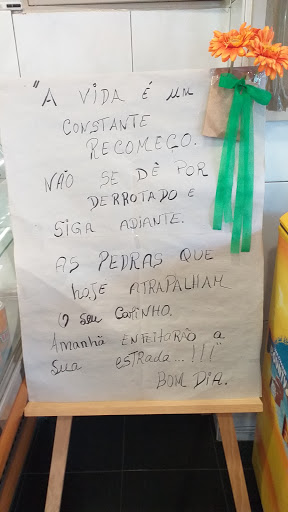 "A VIDA É UM
CONSTANTE
RECOMEÇO.
NÃO SE DÊ POR
DERROTADO E
SIGA ADIANTE.
AS PEDRAS QUE
hoJE ATRAPALHAM
O Seu CAMINHO.
Amanhã ENFEITARÃO a
Sua estrada...!!!"
BOM DIA.